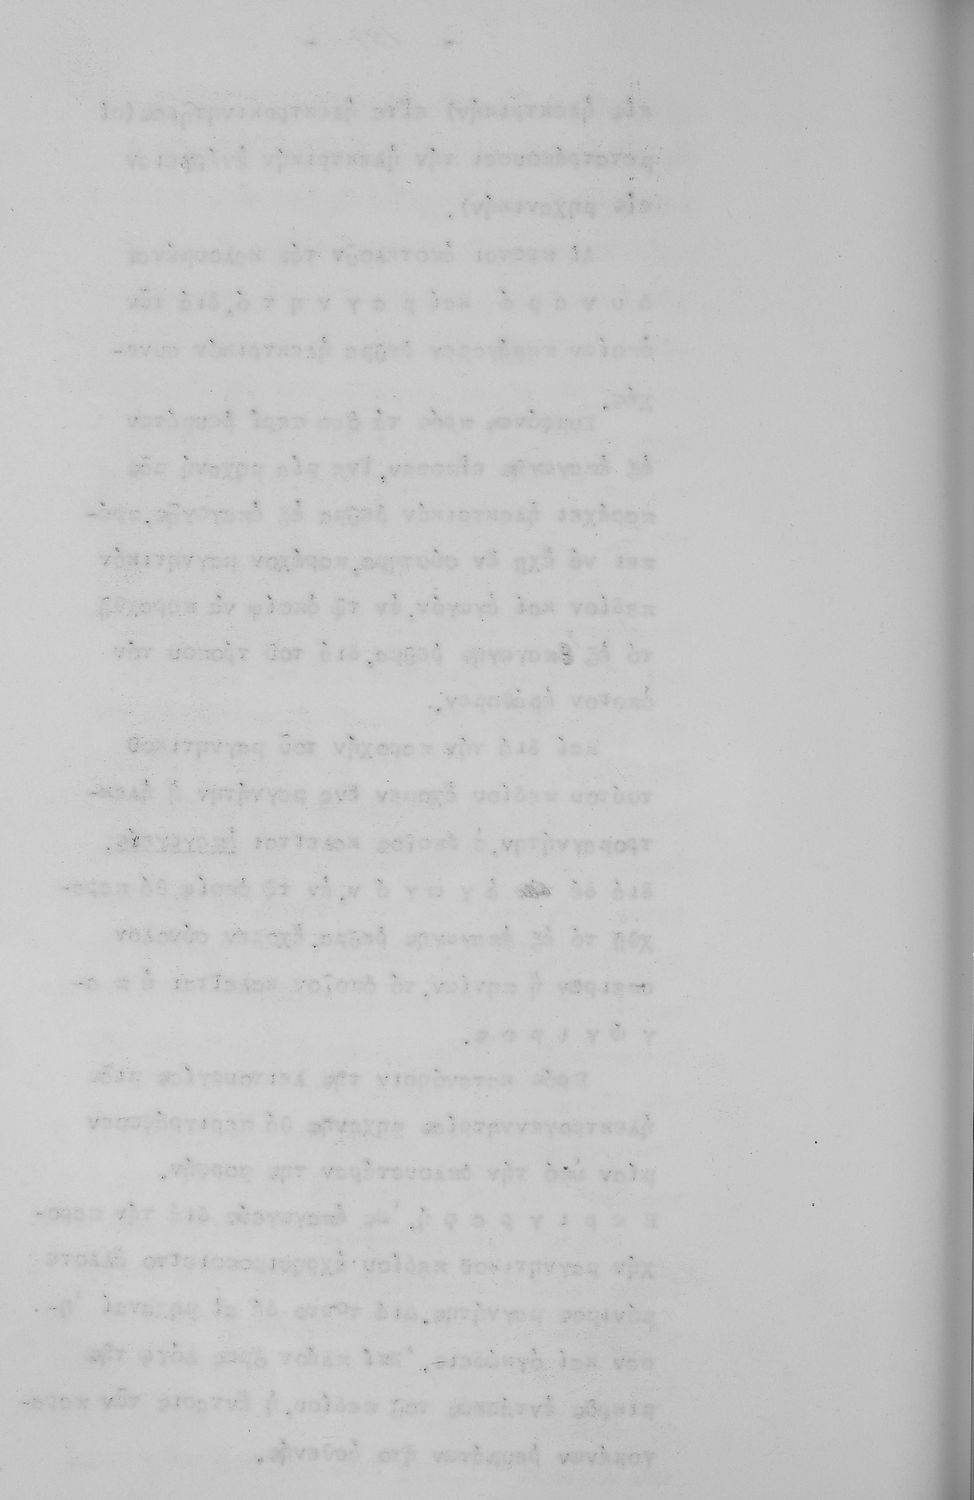 εἰς ἠλεκτρικήν) εἴτε ἠλεκτροκινητῆρας(οἱ
μετατρέπουσαι τήν ἠλεκτρικήν ἐνέργειαν
εἰς μηχανικήν).
Αἱ πρῶται ἀποτελοῦν τάς καλουμένας
δ υ ν α μ ό καί μ α γ ν η τ ό, διά τῶν
ὁποίων παράγομεν ρεῦμα ἠλεκτρικόν συνε-
χές.
Συμφώνως πρός τά ὅσα περί ρευμάτων
ἐξ ἐπαγωγῆς εἴπομεν, ἵνα μία μηχανή μᾶς
παρέχει ἠλεκτρικόν ρεῦμα ἐξ ἐπαγωγῆς, πρέ-
πει νά ἔχῃ ἕν σύστημα, παρέχον μαγνητικόν
πεδίον καί ἀγωγόν, ἐν τῷ ὁποίῳ νά παραχθῇ
τό ἐξ ἐπαγωγῆς ρεῦμα, διά τοῦ τρόπου τόν
ὁποῖον ἐμάθομεν.
Καί διά τήν παροχήν τοῦ μαγνητικοῦ
τούτου πεδίου ἔχομεν ἕνα μαγνήτην ἤ ἠλεκ-
τρομαγνήτην, ὁ ὁποῖος καλεῖται ἐπαγωγεύς,
διά δέ ἀ γ ω γ ό ν, ἐν τῷ ὁποίῳ θά παρα-
χθῇ τό ἐξ ἐπαγωγῆς ρεῦμα, ἔχομεν σύνολον
σπειρῶν ἤ πηνίων, τό ὁποῖον καλεῖται ἐ π α-
γ ώ γ ι μ ο ν.
Πρός κατανόησιν τῆς λειτουργίας μιᾶς
ἠλεκτρογεννητρίας μηχανῆς θά περιγράψωμεν
μίαν ὑπό τήν ἁπλουστέραν της μορφήν.
Π ε ρ ι γ ρ α φ ή. Ὡς ἐπαγωγεύς διά τήν παρο-
χήν μαγνητικοῦ πεδίου ἐχρησιμοποιεῖτο ἄλλοτε
μόνιμος μαγνήτης, διά τοῦτο δέ αἱ μηχαναί ἦ-
σαν καί ὀγκώδεις. Ἐπί πλέον ὅμως λόγῳ τῆς
μικρᾶς ἐντάσεως τοῦ πεδίου, ἡ ἔντασις τῶν παρα-
γομένων ρευμάτων ἦτο ἀσθενής.